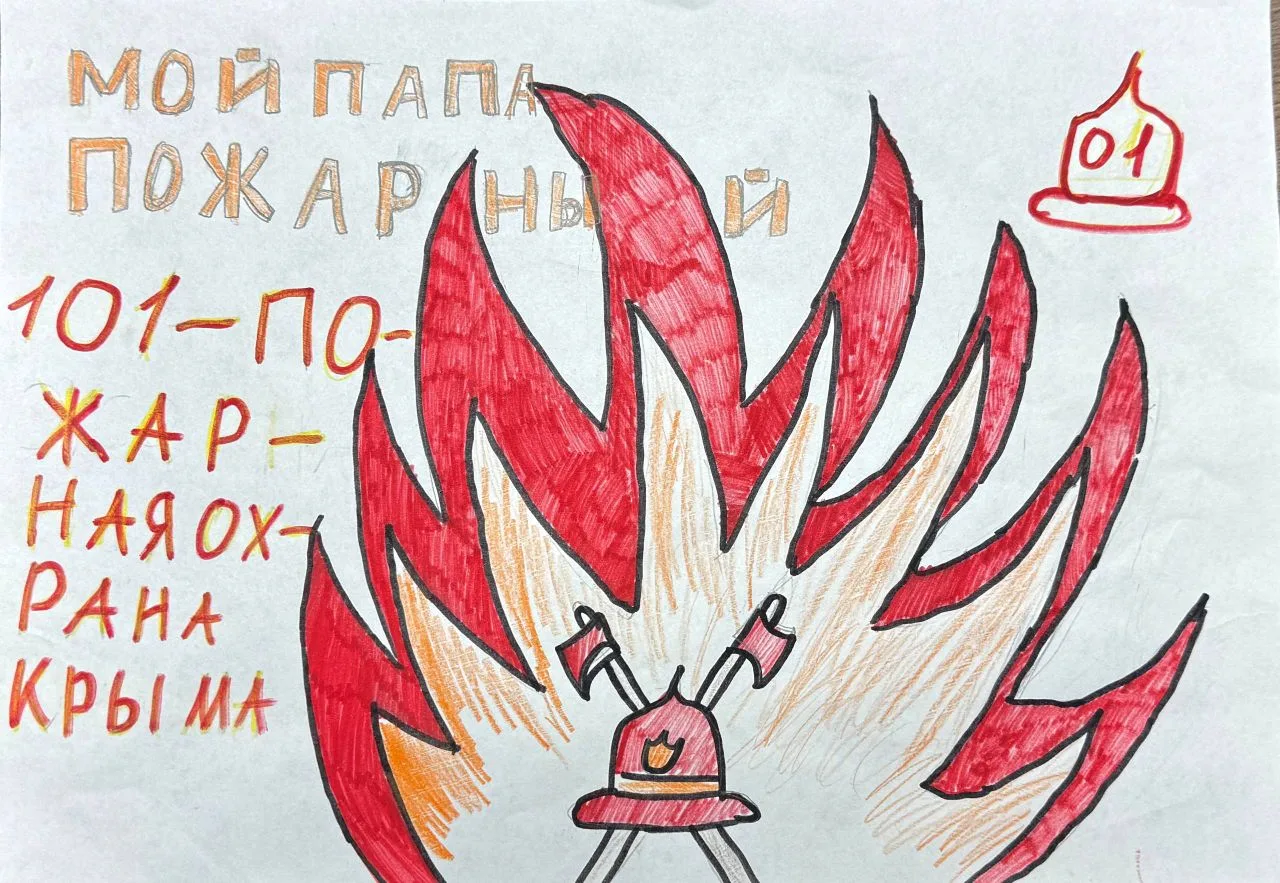 МОЙ ПАПА
ПОЖАРНЫЙ
01
101-ПО-
ЖАР-
НАЯ ОХ-
РАНА
КРЫМА